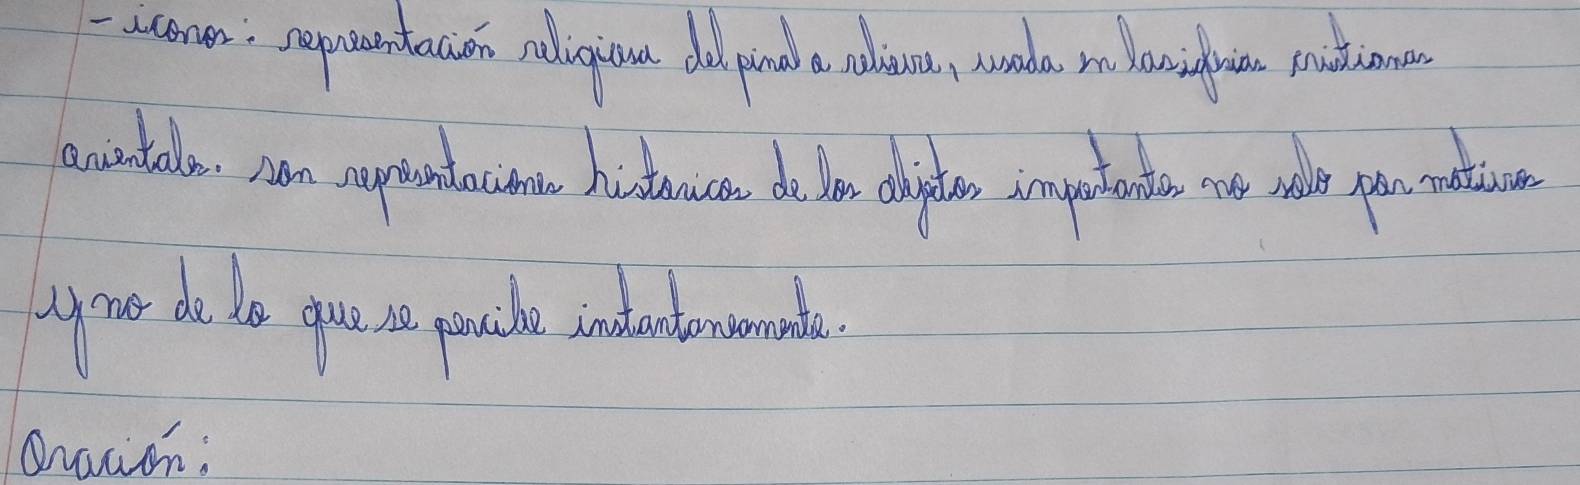 - iconos: representación religiosa del pinal a relieve, usada en las iglesias cristianas
orientales. son representaciones historicas de los objetos importantes no solo por motivos
y no de lo que se percibe instantaneamente.
Oración: